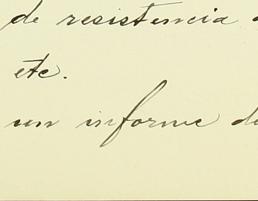 de resistencia
etc.
un informe de